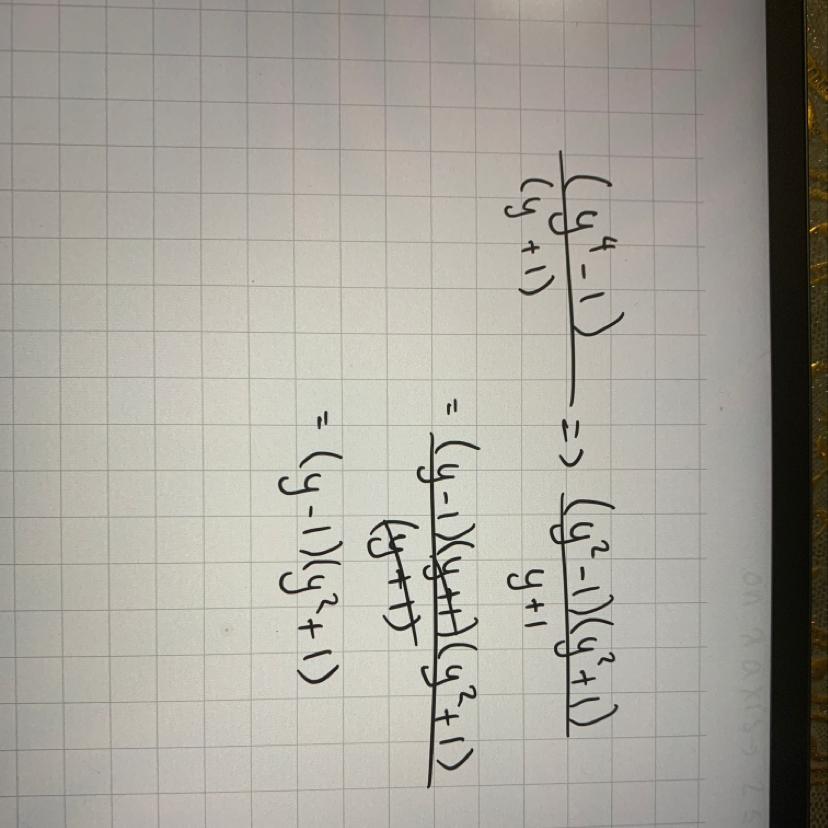 (y⁴ - 1) / (y + 1) => (y² - 1)(y² + 1) / y + 1
= (y - 1)(y + 1)(y² + 1) / (y + 1)
= (y - 1)(y² + 1)